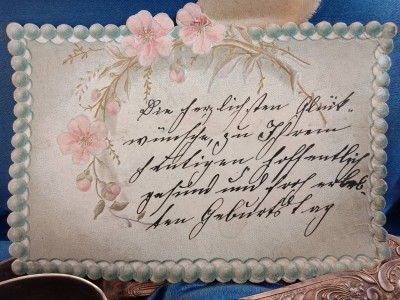 Die herzlichsten Glück-
wünsche, zu Ihrem
heutigen hoffentlich
gesund und froh erleb-
ten Geburtstag